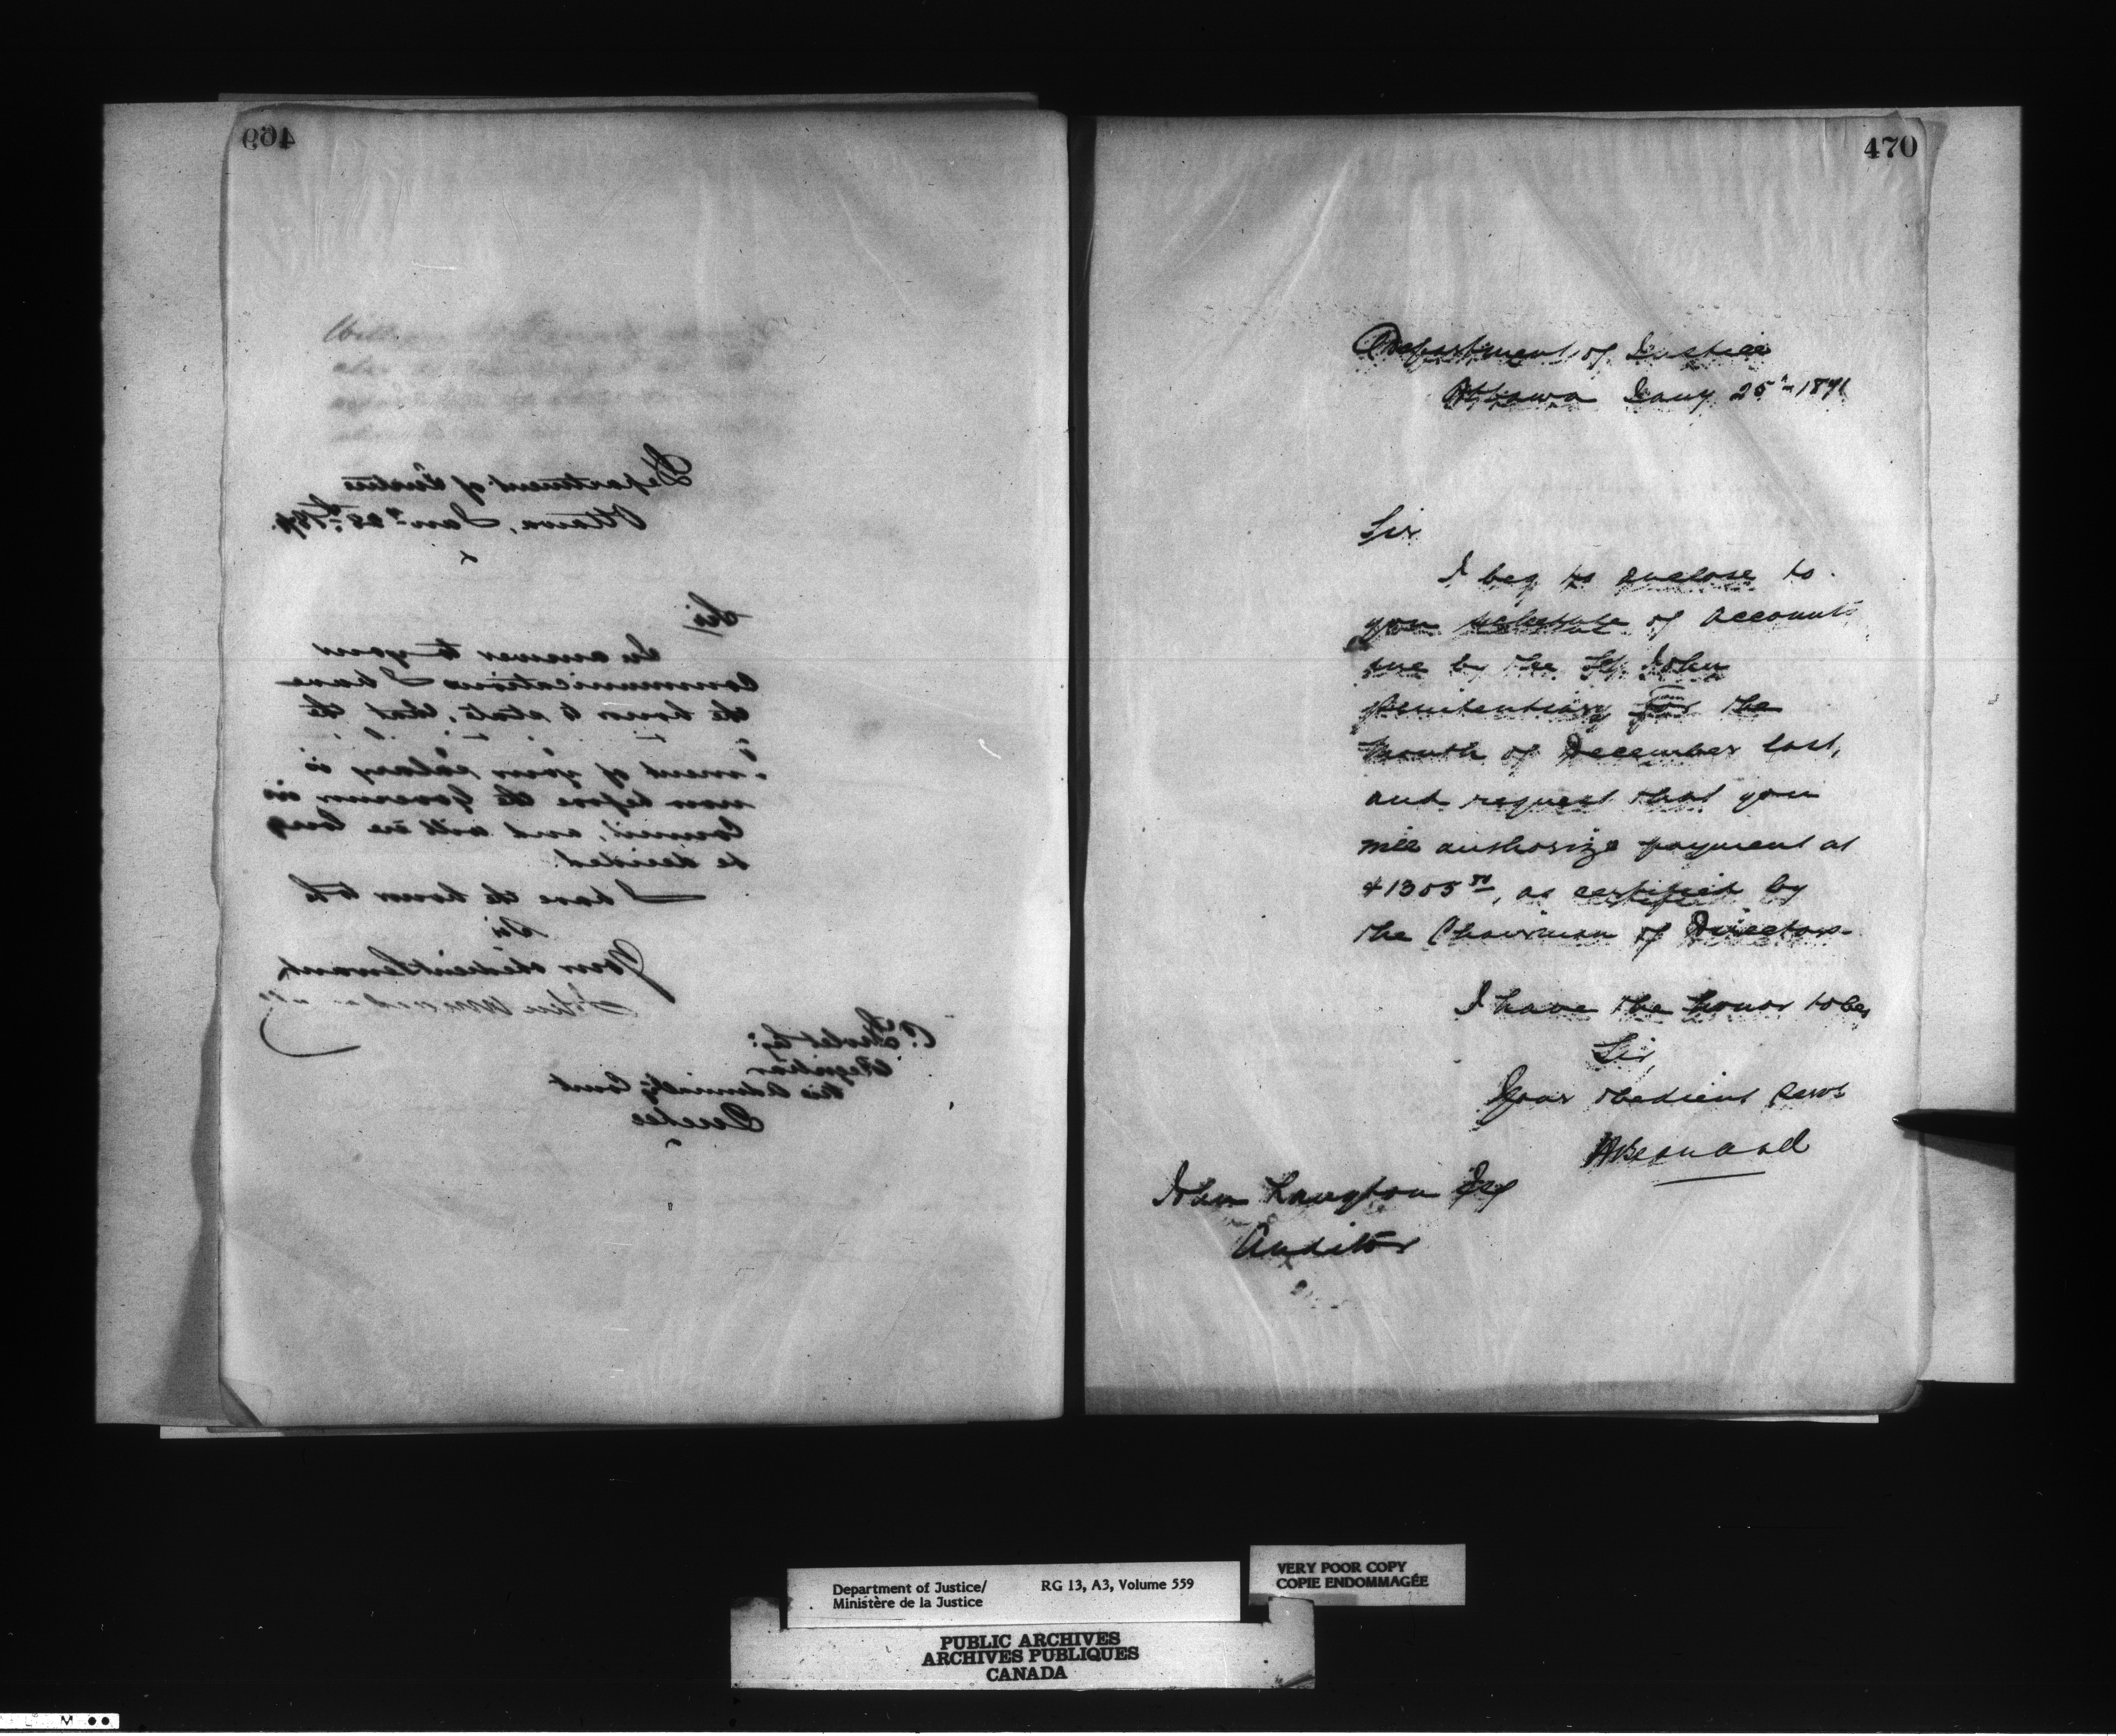 469
Department of Justice
Ottawa, Jany 25th 1871.
Sir
In answer to your
Communications I have
the honor to state, that the
ment of your salary is
now before the Governor in
Council, and will ere long
be decided.
I have the honor to be
Sir
Your obedient servant,
John
Esq:
Registrar
Vice Admiralty Court
Quebec
470
Department of Justice
Ottawa Jany 25th 1871
Sir
I beg to enclose to
you schedule of accounts
due by the St. John
Penitentiary for the
Month of December last,
and request that you
will authorize payment at
$1305, as certified by
the Chairman of Directors.
I have the honor to be,
Sir,
Your obedient Servt
HBernard
John Langton Esq
Auditor
Department of Justice/
Ministère de la Justice
RG 13, A3, Volume 559
VERY POOR COPY
COPIE ENDOMMAGÉE
PUBLIC ARCHIVES
ARCHIVES PUBLIQUES
CANADA